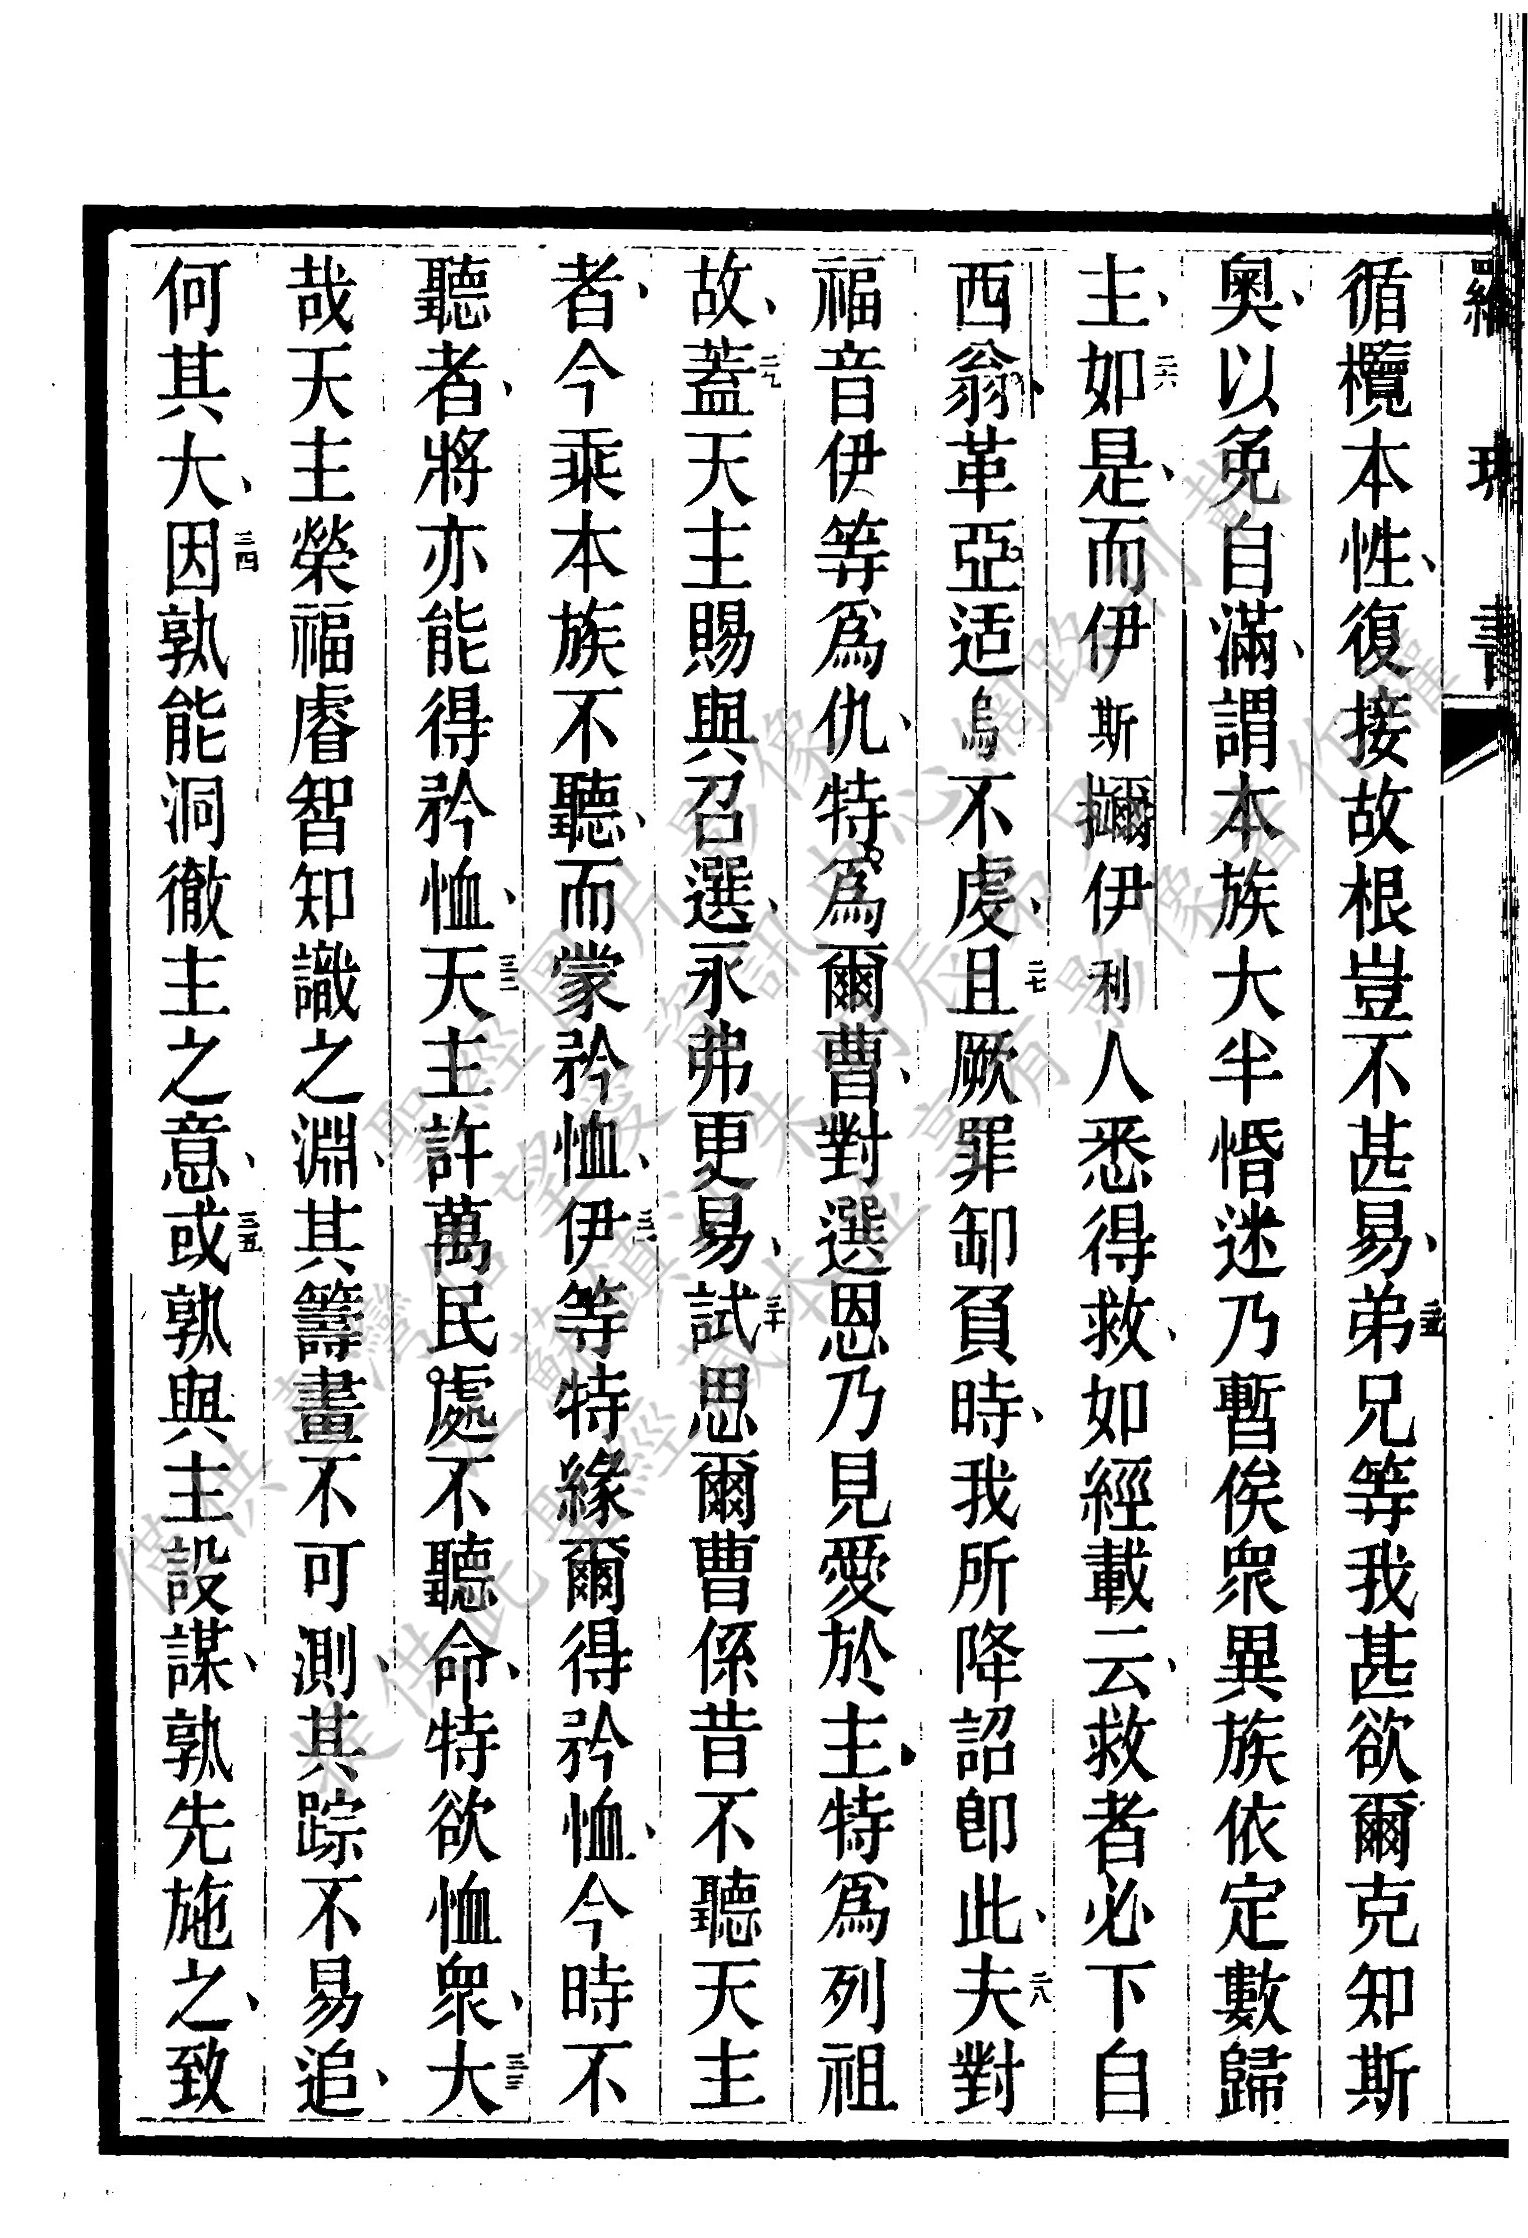 羅瑪書
循欖本性、復接故根豈不甚易、二五弟兄等我甚欲爾克知斯
奥、以免自滿、謂本族大半惛迷乃暫俟衆異族依定數歸
主、二六如是、而伊斯擟伊利人悉得救、如經載云、救者必下自
西翁、革亞适烏不虔、二七且厥罪卸負時、我所降詔卽此、二八夫對
福音伊等爲仇、特爲爾曹、對選恩乃見愛於主、特爲列祖
故、二九蓋天主賜與召選、永弗更易、三十試思爾曹係昔不聽天主
者、今乘本族不聽、而蒙矜恤、三一伊等特緣爾得矜恤、今時不
聽者、將亦能得矜恤、三二天主許萬民處不聽命、特欲恤衆、三三大
哉天主榮福睿智知識之淵、其籌畫不可測、其踪不易追、
何其大、三四因孰能洞徹主之意、三五或孰與主設謀、孰先施之、致